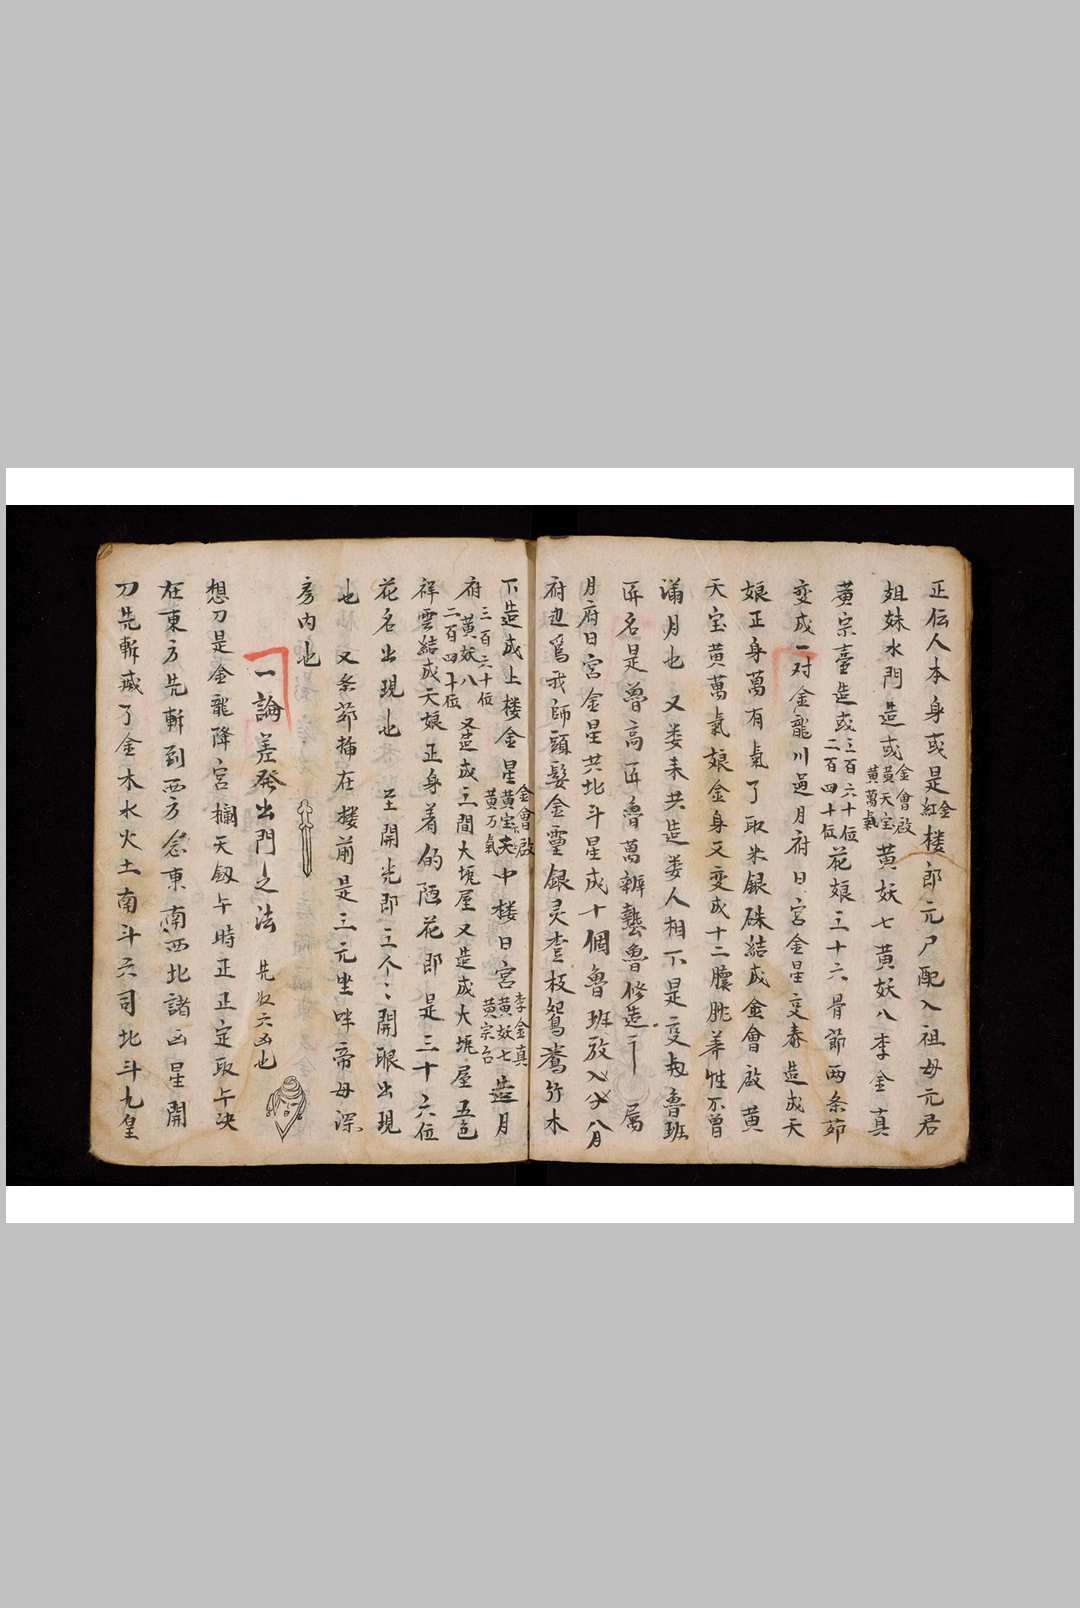 正伝人本身或是紅金楼郎元尸配入祖母元君
姐妹水門造或金會啟黃天宝黃萬氣黃妖七黃妖八李金真
黃宗臺造或三百六十位二百四十位花娘三十六骨節两条茆
变成一对金龍川過月府日宮金星交泰造成天
娘正身萬有氣了取米銀硃結成金會啟黃
天宝黃萬氣娘金身又变成十二臟胱养性不曾
滿月也又娄耒共造娄人相下是变为魯班
匠名是曾高匠魯萬辦藝魯修造 屬
月府日宮金星共北斗星成十個魯班放入八月
府边爲我師頭髮金靈銀灵杏枝鴛鴦竹木
下造成上楼金星金會啟黃宝夫黃万氣中楼日宮李金真黃妖七黃宗台造月
府三百六十位黃妖八二百四十位又造成三間大坭屋又造成大坭屋五色
祥雲結成天娘正身着的陋花郎是三十六位
花名出現也至開光即三个〻開眼出現
也又条茆揷在楼前是三元坐呌帝母深
房内也
一論差発出門之法 先收六凶也
想刀是金龍降宮攔天劔午時正正定取午决
在東方先斬到西方念東南西北諸凶星開
刀先斬威了金木水火土南斗六司北斗九皇